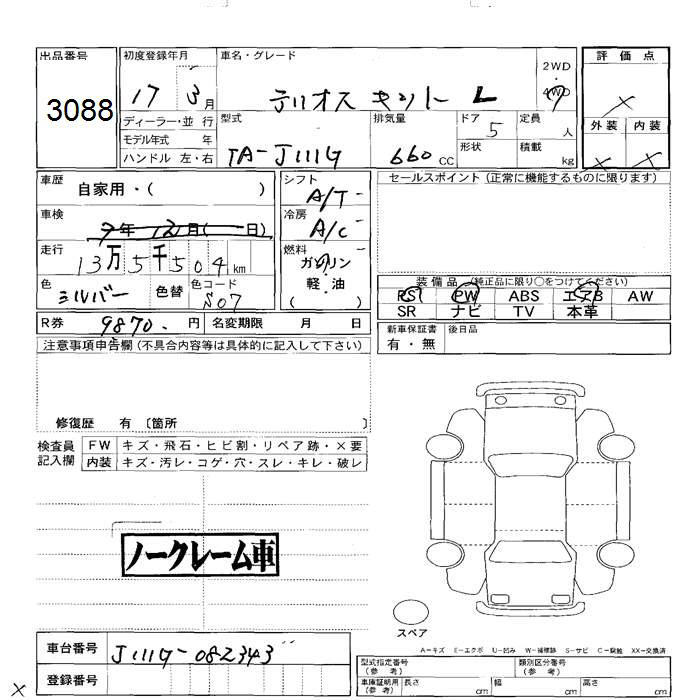 出品番号
3088
初度登録年月
17 3月
車名・グレード
テリオス キット L
2WD
4WD
評価点
×
外装 内装
× ×
ディーラー・並行
モデル年式 年
ハンドル 左・右
型式
TA-J111G
排気量
660 cc
ドア 5
形状
定員 人
積載 kg
車歴
自家用・( )
車検
年12月( 日)
走行
13万5千504km
色
シルバー
色替
色コード
S07
シフト
A/T
冷房
A/C
燃料
ガソリン
軽・油
( )
セールスポイント (正常に機能するものに限ります)
装備品 (純正品に限り○をつけてください)
PS PW ABS エアB AW
SR ナビ TV 本革
R券 9870 円
名変期限 月 日
新車保証書
有・無
後日品
注意事項申告欄(不具合内容等は具体的に記入して下さい)
修復歴 有〔箇所 〕
検査員
記入欄
FW キズ・飛石・ヒビ割・リペア跡・×要
内装 キズ・汚レ・コゲ・穴・スレ・キレ・破レ
ノークレーム車
スペア
A−キズ E−エクボ U−凹み W−補修跡 S−サビ C−腐蝕 XX−交換済
車台番号
J111G-082343
登録番号
型式指定番号
(参考)
類別区分番号
(参考)
車庫証明用
(参考)
長さ cm
幅 cm
高さ cm
×